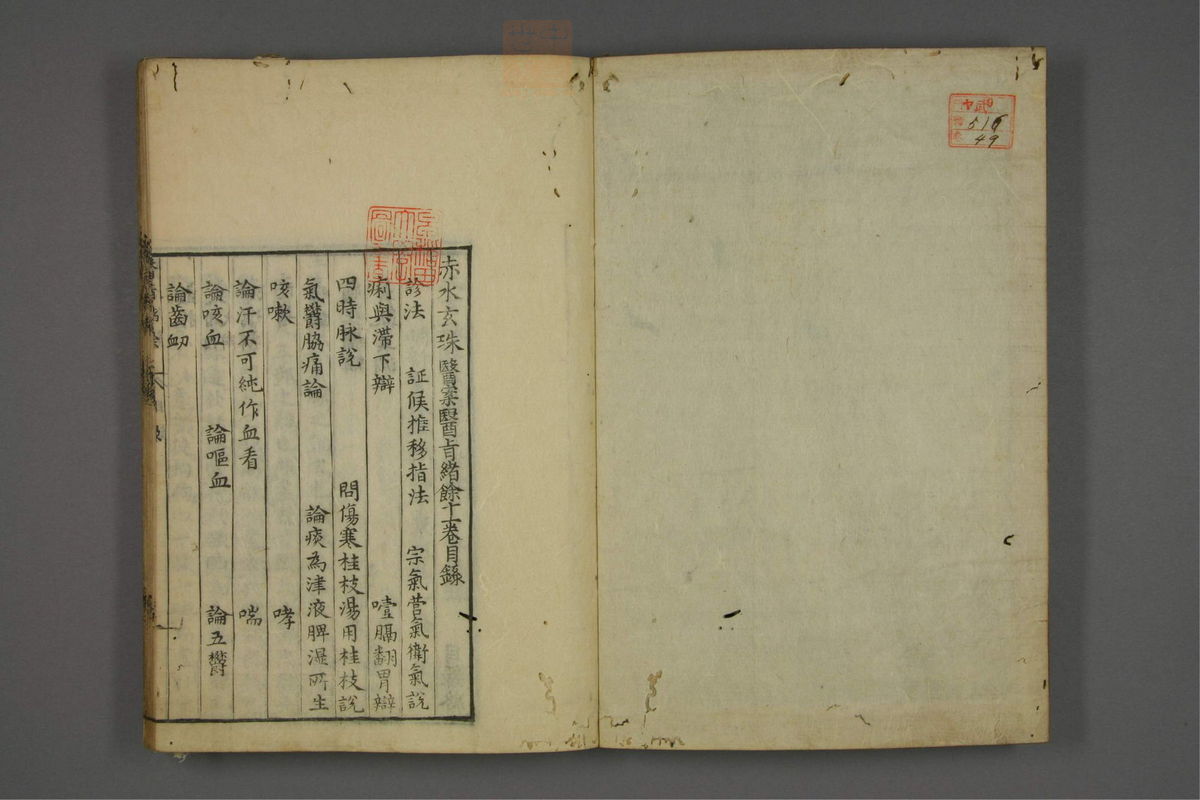 赤水玄珠醫案醫旨緒餘十一卷目錄
診法　証候推移指法　宗氣營氣衛氣說
痢與滯下辯　噎膈翻胃辯
四時脉說　問傷寒桂枝湯用桂枝說
氣鬱脇痛論　論痰為津液脾濕所生
咳嗽　哮
論汗不可純作血看　喘
論咳血　論嘔血　論五鬱
論齒衂
516
49